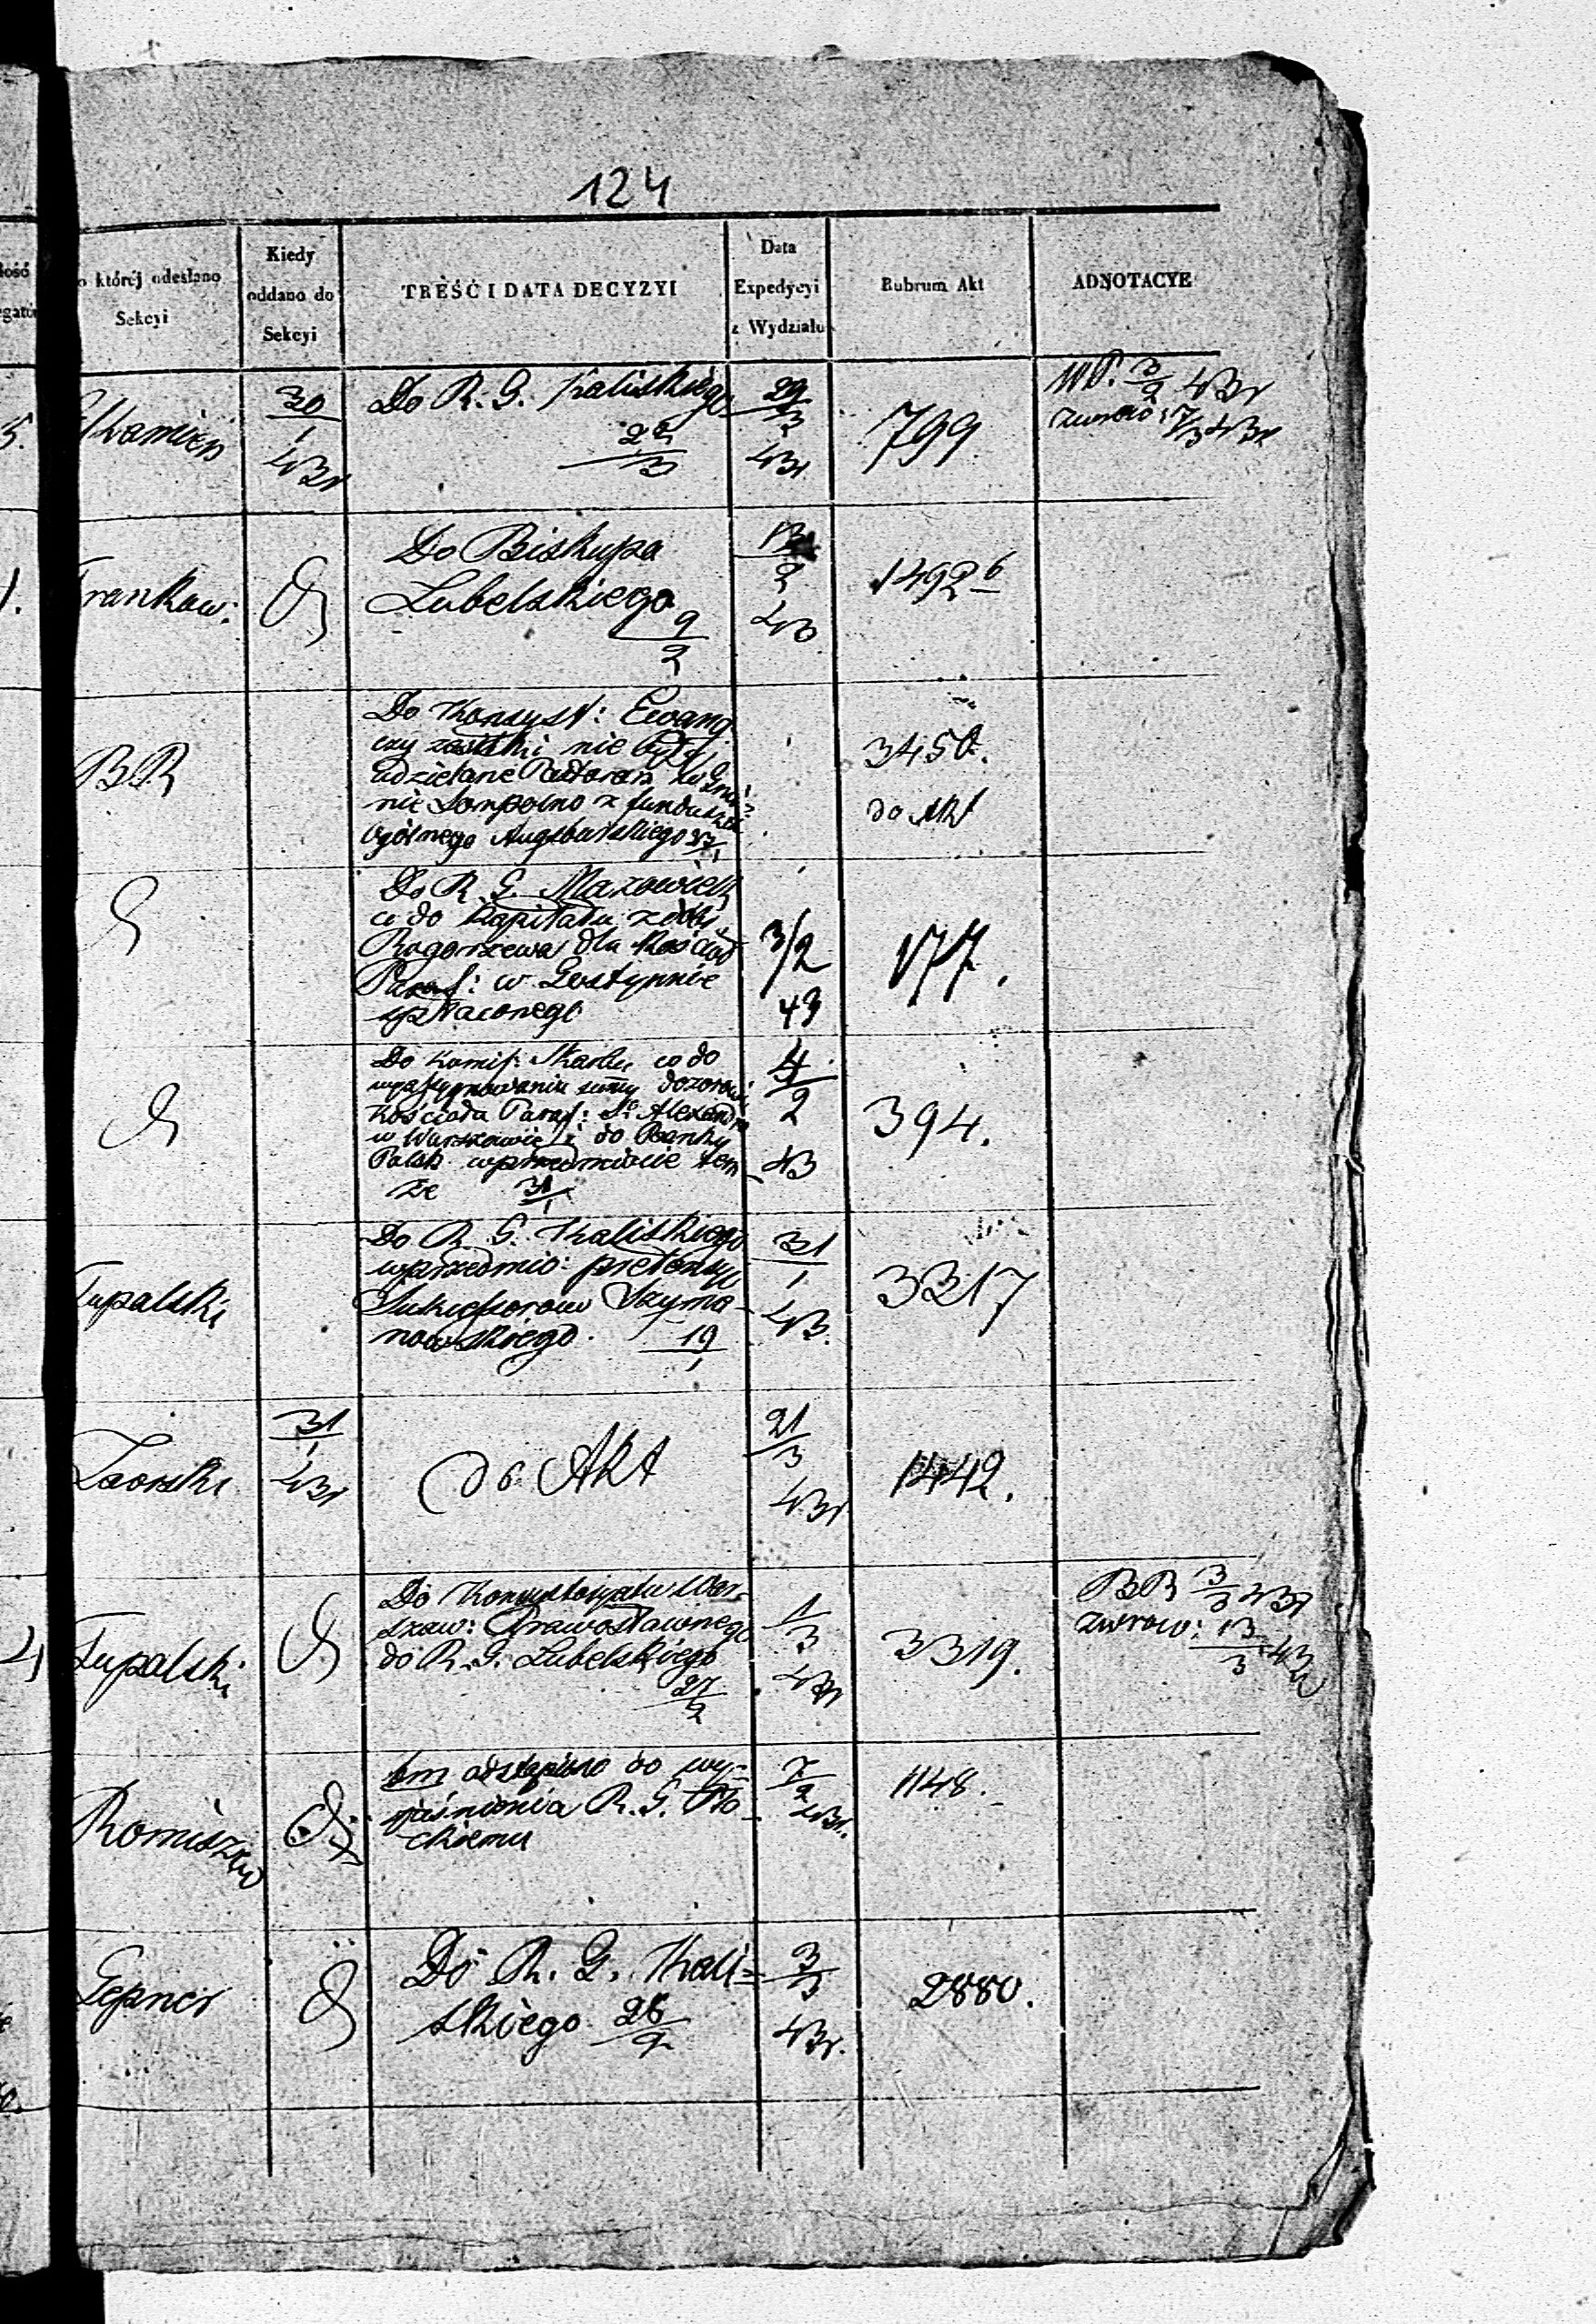 124
Do której odesłano
Sekcyi
Kiedy
oddano do
Sekcyi
TREŚĆ I DATA DECYZYI
Data
Expedycyi
z Wydziału
Rubrum Akt
ADNOTACYE
30
1
431
Do R. G. Kaliskiego
22
3
29
3
431
799
3
2 431
7/3 431
Frankow:
Do Biskupa
Lubelskiego
9
2
2
43
1492
BR
Do Konsyst: Ewang
czy zasiłki nie były
udzielane Pastorom w Gmi-
nie Sompolno z funduszu
Ogólnego Augsburskiego
3450.
do Akt
Do R. G. Mazowieck
co do Kapitału z dóbr
Rogorzewa dla Kościoł
Paraf: w Gostynnie
spłaconego
3/2
43
177.
Do Komiss: Skarbu co do
wyassygnowania summy dozorowi
Kościoła Paraf: Sgo Alexandra
w Warszawie i do Banku
Polsk. w przedmiocie tem
że 31
1
4
2
43
394.
Tupalski
Do R. G. Kaliskiego
w przedmio: pretensyi
Sukcessorów Szyma-
nowskiego. 19
1
31
1
43.
3317
Zaorski
31
1
431
do Akt
21
3
431
1442.
Tupalski
Do Konsystorza War-
szaw: Prawosławnego
do R. G. Lubelskiego
27
2
1
3
431
3319.
BR 3
3 431
zwrow: 13
3 431
Romiszew
bm odstąpiono do wy-
jaśnienia R. G. Pło-
ckiemu
7
2
431.
1148.
Lepner
Do R. G. Kali-
skiego 28
2
3
3
431.
2880.